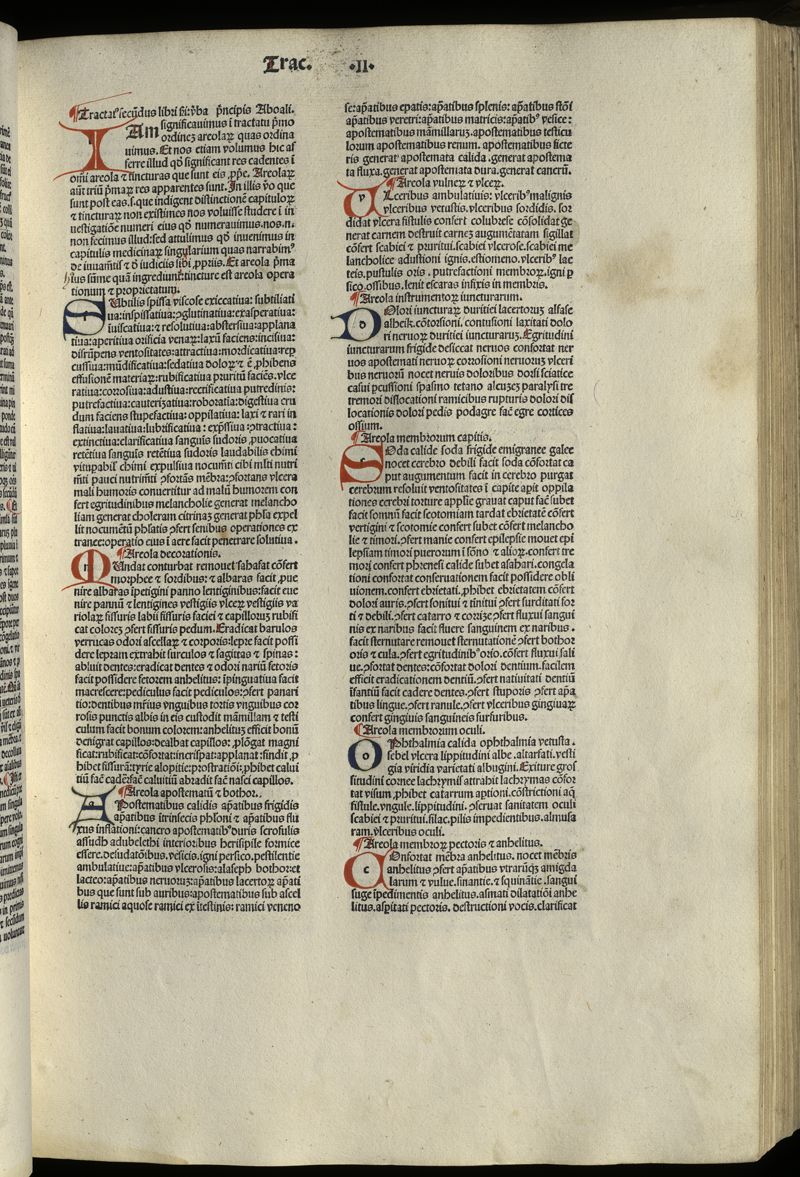 Trac. .II.
¶Tractatꝰ secūdus libri scḋi: v̄ba pncipis Aboali.
IAm significauimus ī tractatu pmo
ordinez areolaꝝ quas ordina
uimus. Et nos etiam volumus hic as
serre illud qḋ significant res cadentes ī
omī areola ⁊ tincturas que sunt eis ꝓpe. Areolaꝝ
aūt triū pmaꝝ res apparentes sunt. In illis v̄o que
sunt post eas. s. que indigent distinctionē capituloꝝ
⁊ tincturaꝝ non existimes nos voluisse studere ī in
uestigatiōe numeri eius qḋ numerauimus. nos. n.
non fecimus illud: sed attulimus qḋ inuenimus in
capitulis medicinaꝝ singularium quas narrabimꝰ
de iuuamētis ⁊ ḋ iudiciis libi ꝓpriis. Et areola pma
huius sūme quā ingrediunť: tincture est areola opera
tionum ⁊ proprietatum.
SUbtilis spissa viscose exiccatiua: subtiliati
ua: inspissatiua: ꝯglutinatiua: exasperatiua:
īuiscatiua ⁊ resolutiua: abstersiua: applana
tiua: aperitiua orificia venaꝝ: laxū faciens: incisiua:
disrūpens ventositates: attractiua: mordicatiua: rep
cussiua: mūdificatiua: sedatiua doloꝝ ⁊ ē ꝓhibens
effusionē materiaꝝ: rubificatiua pruritū faciēs. vlce
ratiua: corrosiua: adustiua: rectificatiua putredinis:
putrefactiua: cauterizatiua: roboratia: digestiua cru
dum faciens stupefactiua: oppilatiua: laxi ⁊ rari in
flatiua: lauatiua: lubrificatiua: expssiua: ꝯtractiua:
extinctiua: clarificatiua sanguīs sudoris, puocatiua
retētiua sanguis retētiua sudoris laudabilis chimi
vitupabil' chimi expulsiua nocumēti cibi mlti nutri
mēti pauci nutrimēti ꝯfortās mēbra: ꝯfortans vlcera
mali humoris conuertitur ad malū humorem con
fert egritudinibus melancholie generat melancho
liam generat choleram citrinaꝫ generat phlsa expel
lit nocumētū phlsatis ꝯfert senibus operationes ex
tranee: operatio eius ī aere facit penetrare solutiua.
¶Areola decorationis.
MUndat conturbat remouet sahafat cōfert
morphee ⁊ sordibus: ⁊ albaras facit, pue
nire albaras īpetigini panno lentiginibus: facit eue
nire pannū ⁊ lentigines vestigiis vlceꝝ vestigiis va
riolaꝝ fissuris labii fissuris faciei ⁊ capilloruꝫ rubifi
cat coloreꝫ ꝯfert fissuris pedum. Eradicat barulos
verrucas odori ascellaꝝ ⁊ corporis: lepre facit possi
dere lepram extrahit surculos ⁊ sagittas ⁊ spinas:
abluit dentes: eradicat dentes ⁊ odori nariū fetoris
facit possidere fetorem anhelitus: īpinguatiua facit
macrescere: pediculus facit pediculos: ꝯfert panari
tio: dentibus mr̄ius vnguibus tortis vnguibus cor
rosis punctis albis in eis custodit māmillam ⁊ testi
culum facit bonum colorem: anhelitus efficit bonū
denigrat capillos: dealbat capillos: ꝓlōgat magni
ficat: rubificat: cōfortat: increspat: applanat: findit, p
hibet fissurā: tyrie alopitie: prostratiōi: phibet calui
tiū facē caderēfacē caluitiū abradit facē nasci capillos.
¶Areola apostematū ⁊ bothor.
APostematibus calidis apatibus frigidis
apatibus ītrinsecis phlsoni ⁊ apatibus flu
xus inflationi: cancro apostematibꝰ duris scrofulis
assudh adubelethi interioribus herisipile formice
essere. desudatōibus. vesicis. igni persico. pestilentie
ambulatiue: apatibus vlcerosis: alaseph bothor: et
lacteo: apatibus neruorum: apatibus lacertoꝝ apati
bus que sunt sub auribus: apostematibus sub ascel
lis ramici aquose ramici ex ītestinis: ramici veneno
se: apatibus epatis: apatibus splenis: apatibus stōi
apatibus veretri: apatibus matricis: apatibꝰ vesice:
apostematibus māmillaruꝫ. apostematibus testicu
lorum apostematibus renum. apostematibus ficte
ris generat apostemata calida. generat apostema
ta fluxa. generat apostemata dura. generat cancrū.
¶Areola vulneꝝ ⁊ vlceꝝ.
VLceribus ambulatiuis: vlceribꝰ malignis
vlceribus vetustis. vlceribus sordidis. sor
didat vlcera fistulis confert colubrese cōsolidat ge
nerat carnem destruit carneꝫ augumētatam sigillat
cōfert scabiei ⁊ pruritui. scabiei vlcerose. scabiei me
lancholice adustioni ignis. estiomeno. vlceribꝰ lac
teis. pustulis oris. putrefactioni membroꝝ. igni p
sico. ossibus. lenit escaras infixis in membris.
¶Areola instrumentoꝝ iuncturarum.
DOlori iuncturaꝝ duritiei lacertoruꝫ alfase
alheik. cōtorsioni. contusioni laxitati dolo
ri neruoꝝ duritiei iuncturaruꝫ. Egritudini
iuncturarum frigide desiccat neruos confortat ner
uos apostemati neruoꝝ corrosioni neruoruꝫ vlceri
bus neruorū nocet neruis doloribus dorsi sciatice
casui pcussioni spasmo tetano alcuzeꝫ paralysi tre
tremori dislocationi ramicibus rupturis dolori dis
locationis dolori pedis podagre facē egre cortices
ossium.
¶Areola membrorum capitis.
SOda calide soda frigide emigranee galee
nocet cerebro debili facit soda cōfortat ca
put augumentum facit in cerebro purgat
cerebrum resoluit ventositates ī capite apit oppila
tiones cerebri torture applīe grauat caput facē subet
facit somnū facit scotomiam tardat ebrietatē cōfert
vertigini ⁊ scotomie confert subet cōfert melancho
lie ⁊ timori. ꝯfert manie confert epilepsie mouet epi
lepsiam timori puerorum ī sōno ⁊ alioꝝ. confert tre
mori confert phrenesi calide subet asabari. congela
tioni confortat conseruationem facit possidere obli
uionem. confert ebrietati. phibet ebrietatem cōfert
dolori auris. ꝯfert sonitui ⁊ tinitui ꝯfert surditati for
ti ⁊ debili. ꝯfert catarro ⁊ corrize ꝯfert fluxui sangui
nis ex naribus facit fluere sanguinem ex naribus.
facit sternutare remouet sternutationē ꝯfert bothor
oris ⁊ cula. ꝯfert egritudinibꝰ orio. cōfert fluxui sali
ue. ꝯfortat dentes: cōfortat dolori dentium. facilem
efficit eradicationem dentiū. ꝯfert natiuitati dentiū
īfantiū facit cadere dentes. ꝯfert stuporis ꝯfert apa
tibus lingue. ꝯfert ranule. ꝯfert vlceribus gingiuaꝝ
confert gingiuis sanguineis furfuribus.
¶Areola membrorum oculi.
OPhthalmia calida ophthalmia vetusta.
sebel vlcera lippitudini albe. altarfati. vesti
gia viridia varietati albugini. Exiture gros
situdini cornee lachrymis attrahit lachrymas cōfor
tat visum, phibet catarrum aptioni. cōstrictioni aq̄
fistule. vngule. lippitudini. ꝯseruat sanitatem oculi
scabiei ⁊ pruritui. silac. pilis impedientibus. almusa
ram. vlceribus oculi.
¶Areola membroꝝ pectoris ⁊ anhelitus.
COnfortat mēbra anhelitus. nocet mēbris
anhelitus ꝯfert apatibus vtrarūꝫ amigda
larum ⁊ vulue. sinantie. ⁊ squināntie. sangui
suge īpedimentis anhelitus. asmati dilatatiōi anhe
litus. aspitati pectoris. destructioni vocis. clarificat